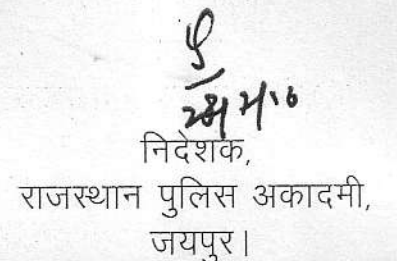 निदेशक,
राजस्थान पुलिस अकादमी,
जयपुर।